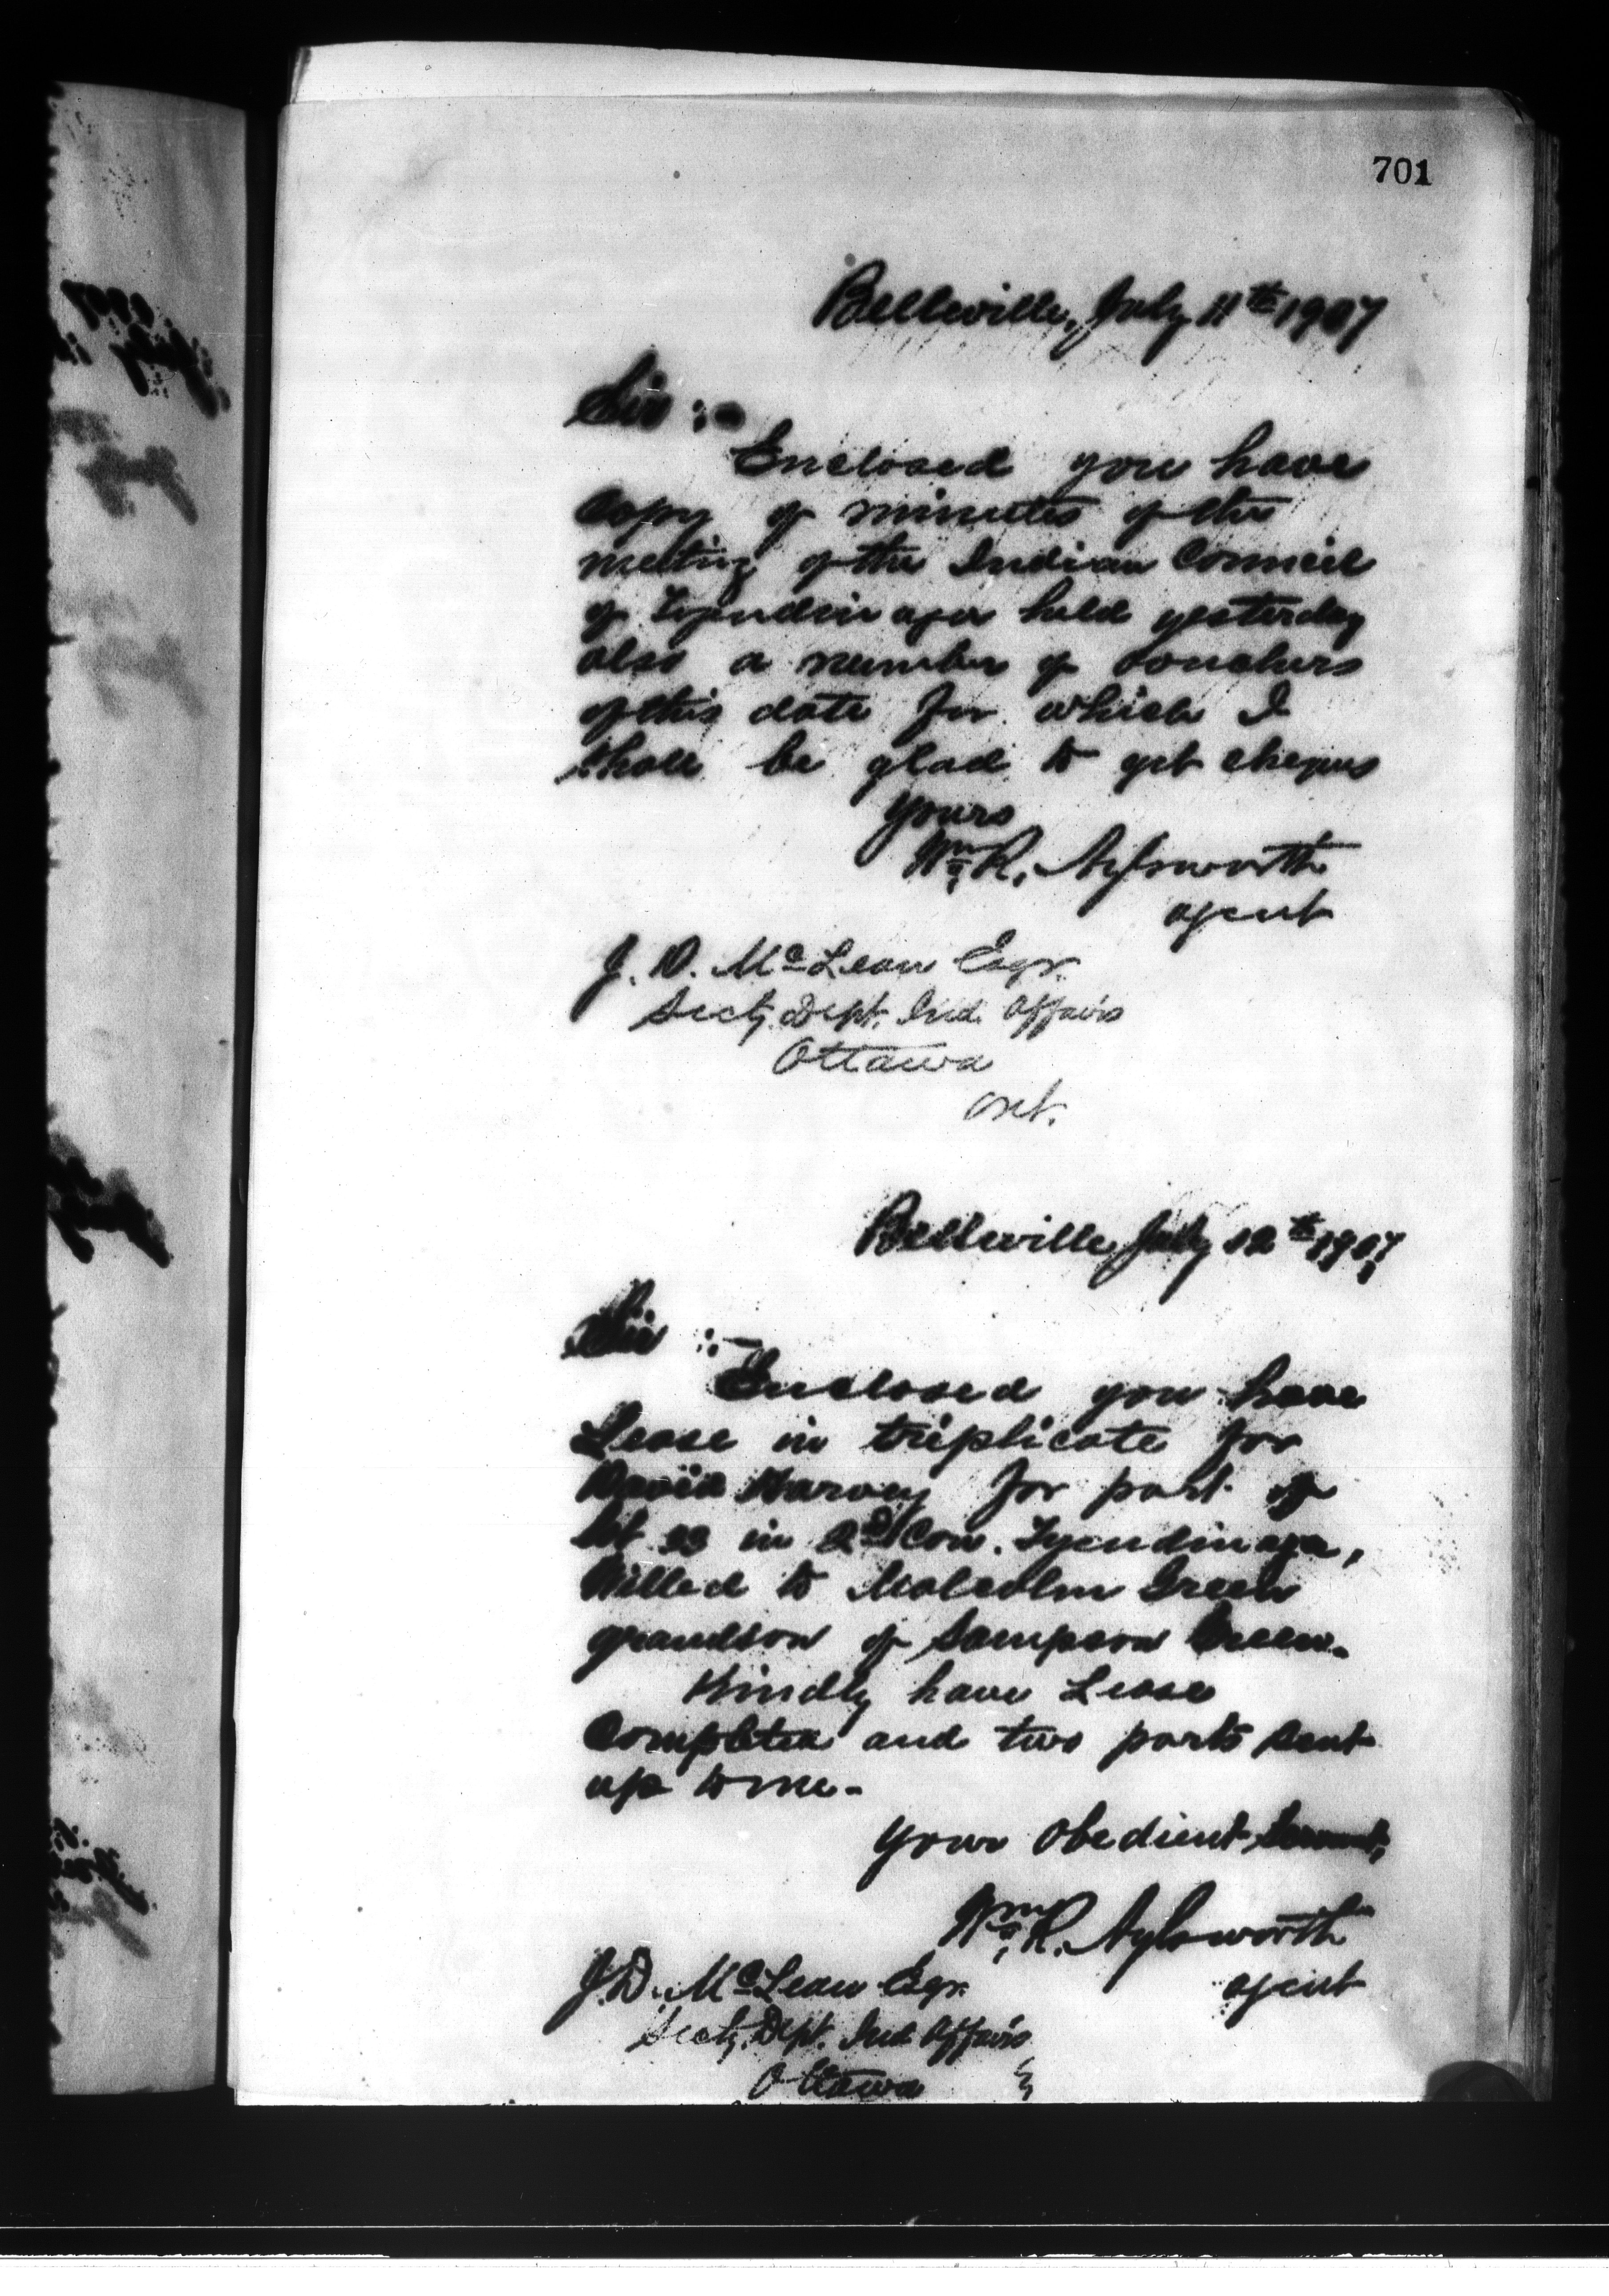 701
Belleville, July 11th 1907
Sir :-
Enclosed you have
Copy of minutes of the
meeting of the Indian Council
of Tyendinaga held yesterday
also a number of vouchers
of this date for which I
shall be glad to get cheques
Yours
Wm R. Aylsworth
agent
J. D. McLean Esqr.
Secty. Dept. Ind. Affairs
Ottawa
Ont.
Belleville July 12th 1907
Sir :-
Enclosed you have
Lease in triplicate for
David Harvey for part of
lot 33 in 2d Con. Tyendinaga,
Willed to Malcolm Green
grandson of Sampson Green.
Kindly have Lease
Completed and two parts sent
up to me-
Your Obedient Servant,
Wm R. Aylsworth
agent
J. D. McLean Esqr.
Secty. Dept. Ind Affairs
Ottawa